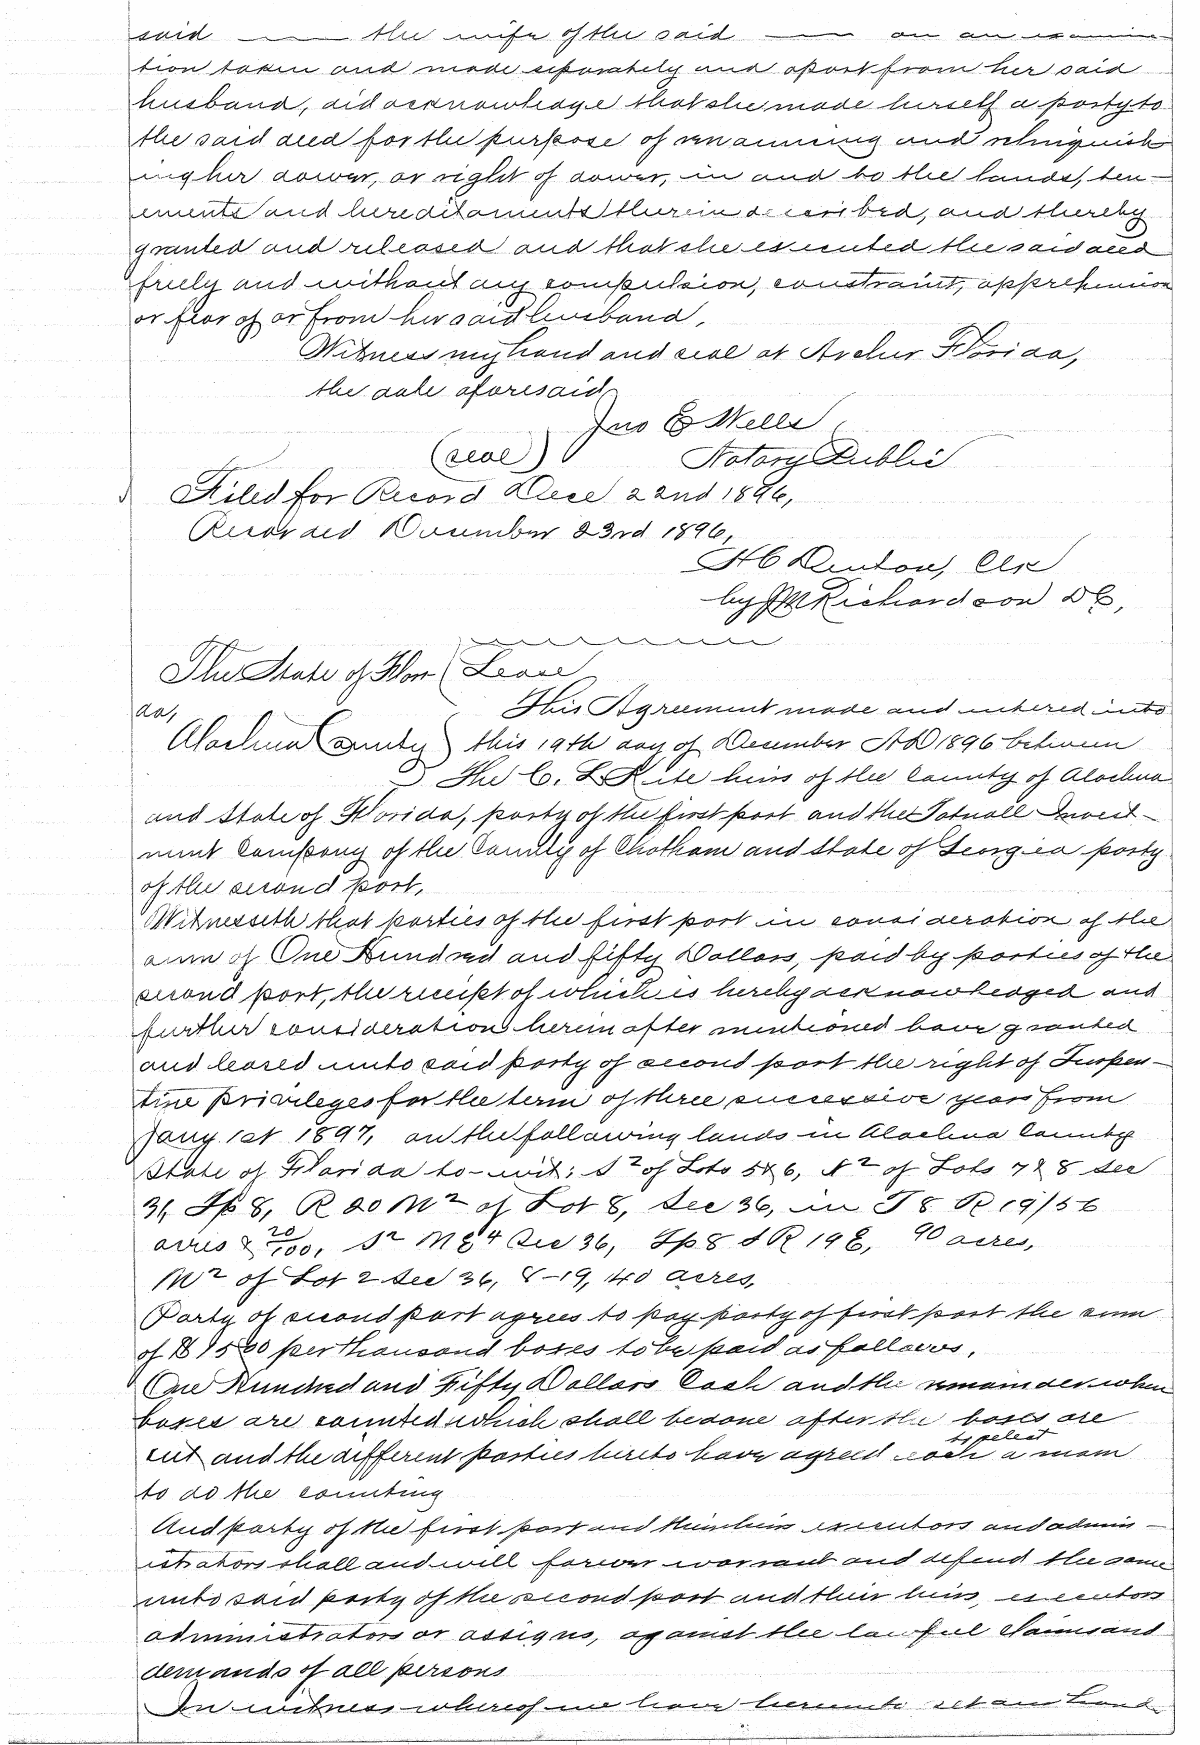 said —— the wife of the said —— on an examina
tion taken and made seperately and apart from her said
husband, did acknowledge that she made herself a party to
the said deed for the purpose of renouncing and relinquish
ing her dower, or right of dower, in and to the lands, ten-
ements and hereditaments therein described, and thereby
granted and released and that she executed the said deed
freely and without any compulsion, constraint, apprehension
or fear of or from her said husband,
Witness my hand and seal at Archer Florida,
the date aforesaid
Jno E Wells
(seal) Notary Public
Filed for Record Dece 22nd 1896,
Recorded December 23rd 1896,
H C Denton, Clk
by Richardson DC,
The State of Flori ( Lease
da,
This Agreement made and entered into
Alachua County ) this 19th day of December AD 1896 between
The C. L. Kite heirs of the County of Alachua
and State of Florida, party of the first part and the Tatnall Invest-
ment Company of the County of Chatham and State of Georgia party
of the second part,
Witnesseth that parties of the first part in consideration of the
sum of One Hundred and fifty Dollars, paid by parties of the
second part, the receipt of which is hereby acknowledged and
further consideration herein after mentioned have granted
and leased unto said party of second part the right of Turpen-
tine privileges for the term of three successive years from
Jany 1st 1897, on the following lands in Alachua County
State of Florida to-wit: S 2 of Lots 5 & 6, N 2 of Lots 7 & 8 Sec
31, Tp 8, R 20 N 2 of Lot 8, Sec 36, in T 8 R 19/56
acres & 20/100, S 2 N E 4 Sec 36, Tp 8 S R 19 E, 90 acres,
N 2 of Lot 2 Sec 36, 8-19, 40 acres,
Party of second part agrees to pay party of first part the sum
of $ 15 00 per thousand boxes to be paid as follows,
One Hundred and Fifty Dollars Cash and the remainder when
boxes are counted which shall be done after the boxes are
cut and the different parties hereto have agreed each to select a man
to do the counting
And party of the first part and their heirs executors and admin-
istrators shall and will forever warrant and defend the same
unto said party of the second part and their heirs, executors
administrators or assigns, against the lawful claims and
demands of all persons
In witness whereof we have hereunto set our hand